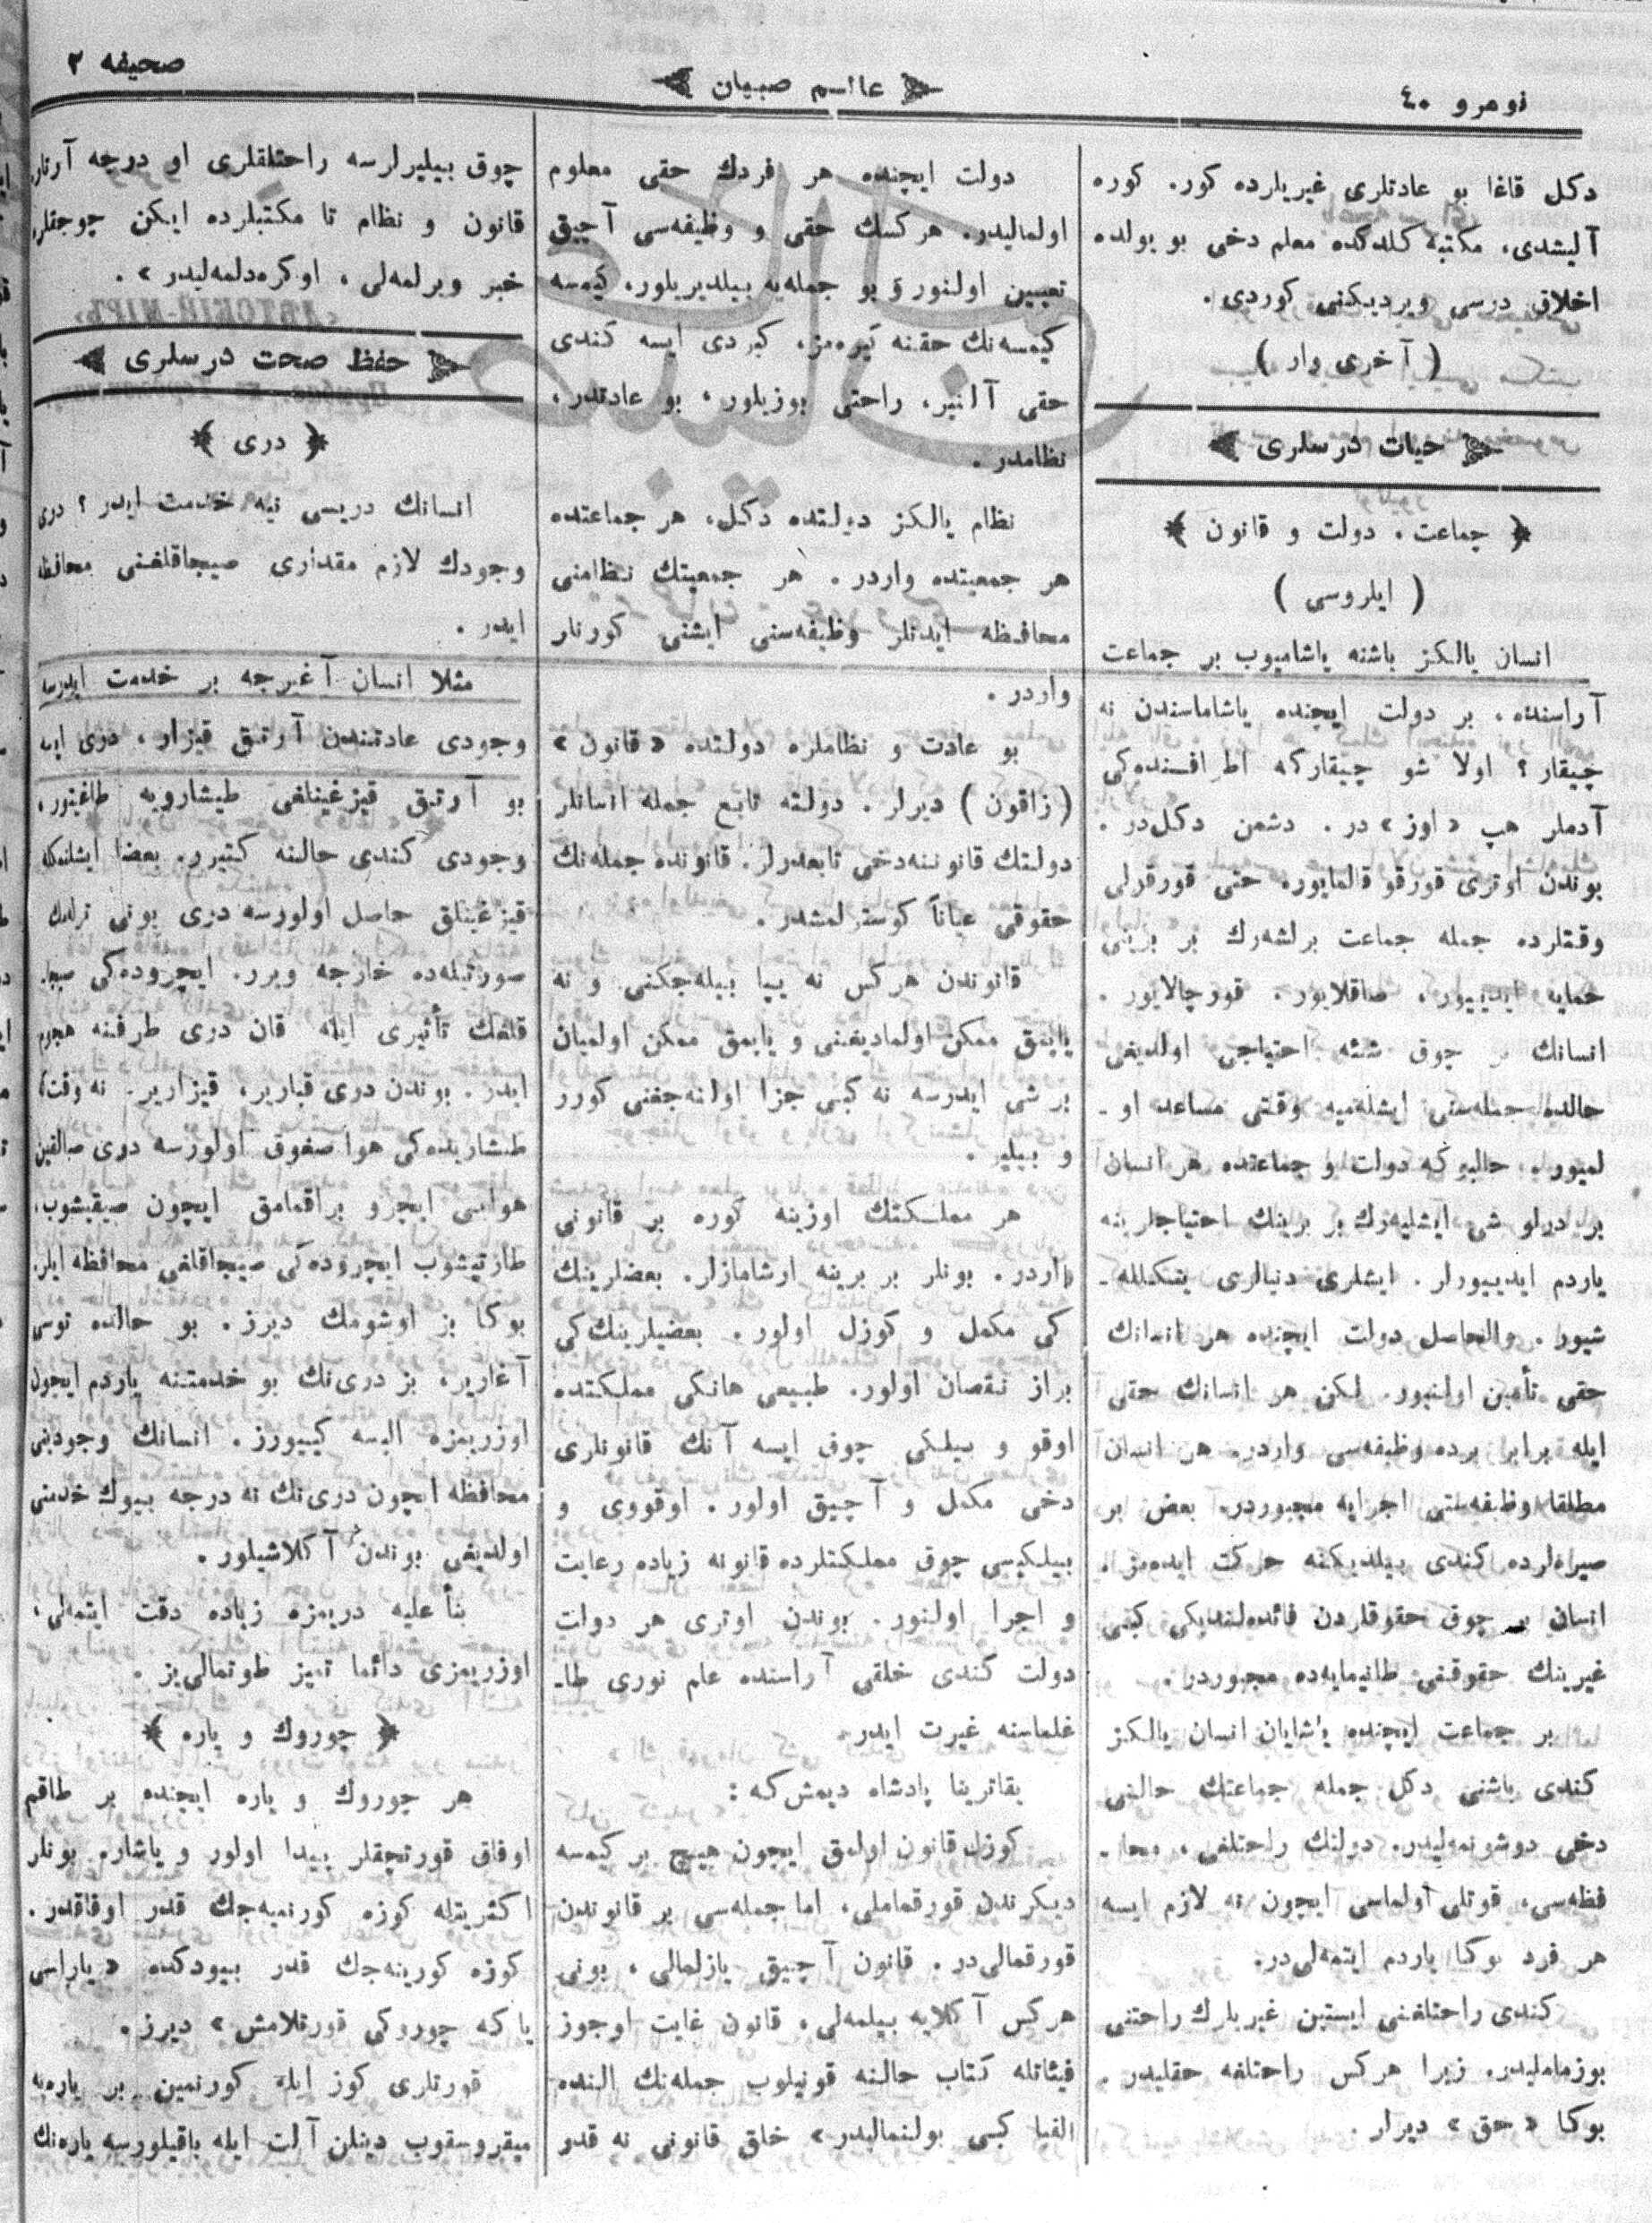 نومرو ٤٠
عالم صبيان
صحيفه ٢
دكل قاغا بو عادتلرى غيريلرده كور. كوره
آليشدى، مكتبه كلدكده معلم دخى بو يولده
اخلاق درسى ويرديكنى كوردى.
( آخرى وار )
حيات درسلرى
﴿ جماعت، دولت و قانون ﴾
( ايلروسى )
انسان يالكز باشنه ياشاميوب بر جماعت
آراسنده، بر دولت ايچنده ياشاماسندن نه
چيقار؟ اولا شو چيقاركه اطرافنده‌كى
آدملر هپ «اوز» در. دشمن دكل‌در.
بوندن اوترى قورقو قالمايور. حتى قورقولى
وقتلرده جمله جماعت برلشه‌رك بر برينى
حمايه ايدييور، صاقلايور. قورچالايور.
انسانك بر چوق شيئه احتياجى اولديغى
حالده جمله‌سنى ايشله‌ميه وقتى مساعد او ـ
لميور. حالبوكه دولت و جماعتده هر انسان
بر درلو شى ايشليه‌رك بر برينك احتياجلرينه
ياردم ايدييورلر. ايشلرى دنيالرى يتكمللە ـ
شيور. والحاصل دولت ايچنده هر انسانك
حقى تأمين اولنيور. لكن هر انسانك حقى
ايله برابر برده وظيفه‌سى واردر. هر انسان
مطلقا وظيفه‌سنى اجرايه مجبوردر. بعض بر
صيرالرده كندى بيلديكنه حركت ايده‌مز.
انسان بر چوق حقوقلردن فائده‌لنديكى كبى
غيرينك حقوقنى طانيمايه‌ده مجبوردر.
بر جماعت ايچنده ياشايان انسان يالكز
كندى باشنى دكل جمله جماعتك حالنى
دخى دوشونمه‌ليدر. دولتك راحتلغى، محا ـ
فظه‌سى، قوتلى اولماسى ايچون نه لازم ايسه
هر فرد بوكا ياردم ايتمه‌لى‌در.
كندى راحتلغنى ايستين غيريلرك راحتنى
بوزماماليدر. زيرا هركس راحتلغه حقليدر.
بوكا «حق» ديرلر.
دولت ايچنده هر فردك حقى معلوم
اولماليدر. هركسك حقى و وظيفه‌سى آچيق
تعيين اولنور و بو جمله‌يه بيلديريلور، كيمسه
كيمسه‌نك حقنه كيره‌مز، كيردى ايسه كندى
حقى آلنير، راحتى بوزيلور، بو عادتدر،
نظامدر.
نظام يالكز دولتده دكل، هر جماعتده
هر جمعيتده واردر. هر جمعيتك نظامنى
محافظه ايدنلر وظيفه‌سنى ايشنى كورنلر
واردر.
بو عادت و نظاملره دولتده «قانون»
( زاقون ) ديرلر. دولته تابع جمله انسانلر
دولتك قانوننه‌دخى تابعدرلر. قانونده جمله‌نك
حقوقى عياناً كوسترلمشدر.
قانوندن هركس نه يپا بيله‌جكنى و نه
ياپمق ممكن اولماديغنى و ياپمق ممكن اولميان
بر شى ايدرسه نه كبى جزا اولنه‌جغنى كورر
و بيلير.
هر مملكتك اوزينه كوره بر قانونى
واردر. بونلر بر برينه اوشامازلر. بعضلرينك
كى مكمل و كوزل اولور. بعضيلرينك‌كى
براز نقصان اولور. طبيعى هانكى مملكتده
اوقو و بيلكى چوق ايسه آنك قانونلرى
دخى مكمل و آچيق اولور. اوقووى و
بيلكيسى چوق مملكتلرده قانونه زياده رعايت
و اجرا اولنور. بوندن اوترى هر دولت
دولت كندى خلقى آراسنده علم نورى طا ـ
غلماسنه غيرت ايدر.
يقاترينا پادشاه ديمش‌كه:
كوزل قانون اولمق ايچون هيچ بر كيمسه
ديكرندن قورقماملى، اما جمله‌سى بر قانوندن
قورقمالى‌در. قانون آچيق يازلمالى، بونى
هركس آكلايه بيلمه‌لى، قانون غايت اوجوز
فيئاتله كتاب حالنه قونيلوب جمله‌نك النده
الفبا كبى بولنماليدر» خلق قانونى نه قدر
چوق بيليرلرسه راحتلقلرى او درجه آرتار.
قانون و نظام تا مكتبلرده ايكن چوجقلره
خبر ويرلمه‌لى، اوكره‌دلمه‌ليدر».
حفظ صحت درسلرى
﴿ درى ﴾
انسانك دريسى نيه خدمت ايدر؟ درى
وجودك لازم مقدارى صيجاقلغنى محافظه
ايدر.
مثلا انسان آغيرجه بر خدمت ايدرسه
وجودى عادتندن آرتق قيزار، درى ايسه
بو آرتق قيزغينلغى طيشارويه طاغيتور،
وجودى كندى حالنه كتيرر. بعضا ايشلنمكله
قيزغينلق حاصل اولورسه درى بونى ترلمك
صورتيله‌ده خارجه ويرر. ايچروده‌كى صيجا ـ
قلغك تأثيرى ايله قان درى طرفنه هجوم
ايدر. بوندن درى قبارير، قيزارير. نه وقت
طيشاريده‌كى هوا صغوق اولورسه درى صالقين
هوايى ايچرو براقمامق ايچون صيقيشوب،
طارتيشوب ايچروده‌كى صيجاقلغى محافظه ايلر.
بوكا بز اوشومك ديرز. بو حالده توسى
آغارير، بز درى‌نك بو خدمتنه ياردم ايچون
اوزريمزه البسه كييورز. انسانك وجودينى
محافظه ايچون درى‌نك نه درجه بيوك خدمتى
اولديغى بوندن آكلاشيلور.
بنأ عليه دريمزه زياده دقت ايتمه‌لى،
اوزريمزى دائما تميز طوتمالى‌يز.
﴿ چوروك و ياره ﴾
هر چوروك و ياره ايچنده بر طاقم
اوفاق قورتجقلر پيدا اولور و ياشار. بونلر
اكثريتله كوزه كورنميه‌جك قدر اوفاقدر.
كوزه كورينه‌جك قدر بيودكده «ياراسى
ياكه چوروكى قورتلامش» ديرز.
قورتلرى كوز ايله كورنمين بر ياره‌يه
ميقروسقوب دينلن آلت ايله باقيلورسه ياره‌نك